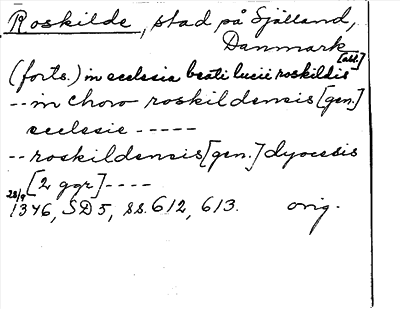 Roskilde, stad på Själland,
Danmark
[abl.]
(forts.) in ecclesia beati lucii roskildis
-- in choro roskildensis [gen.]
ecclesie -----
-- roskildensis [gen.] dyocesis
[2 ggr] ----
28/9
1346, SD 5, ss. 612, 613. orig.